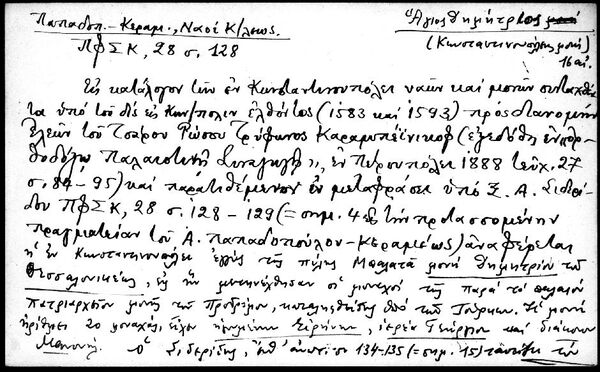 Παπαδοπ.-Κεραμ., Ναοί Κ/λεως.
ΠΦΣΚ, 28 σ. 128
Ἅγιος Δημήτριος
(Κωνσταντινουπόλεως μονή)
16 αἰ.
Εἰς κατάλογον τῶν ἐν Κωνσταντινουπόλει ναῶν καὶ μονῶν συνταχθέν
τα ὑπὸ τοῦ δὶς εἰς Κων/πολιν ἐλθόντος (1583 καὶ 1593) πρὸς διανομὴν
ἐλεῶν τοῦ Τσάρου Ρώσσου Τρύφωνος Καραμπέϊνικοφ (ἐξεδόθη ἐν "Ὀρ
θοδόξῳ Παλαιστινῇ Συλλογῇ", ἐν Πετρουπόλει 1888 τεῦχ. 27
σ. 84-95) καὶ παρατιθέμενον ἐν μεταφράσει ὑπὸ Ξ. Α. Σιδερί-
δου ΠΦΣΚ, 28 σ. 128-129 (= σημ. 4 εἰς τὴν προτασσομένην
πραγματείαν τοῦ Α. Παπαδοπούλου-Κεραμέως) ἀναφέρεται
ἡ ἐν Κωνσταντινουπόλει ἐντὸς τῆς πύλης Μπαλατᾶ μονὴ Δημητρίου τοῦ
Θεσσαλονικέως, εἰς ἣν μετηνέχθησαν οἱ μοναχοὶ τῆς παρὰ τὸ παλαιὸν
πατριαρχεῖον μονῆς τοῦ Προδρόμου, καταληφθείσης ὑπὸ τῶν Τούρκων. Ἡ μονὴ
ἠρίθμει 20 μοναχάς, εἶχεν ἡγουμένην Εἰρήνην, ἱερέα Γεώργιον καὶ διάκονον
Μανουήλ. Ὁ Σιδερίδης, ἔνθ' ἀνωτ. σ. 134-135 (= σημ. 15) ταυτίζει τὴν